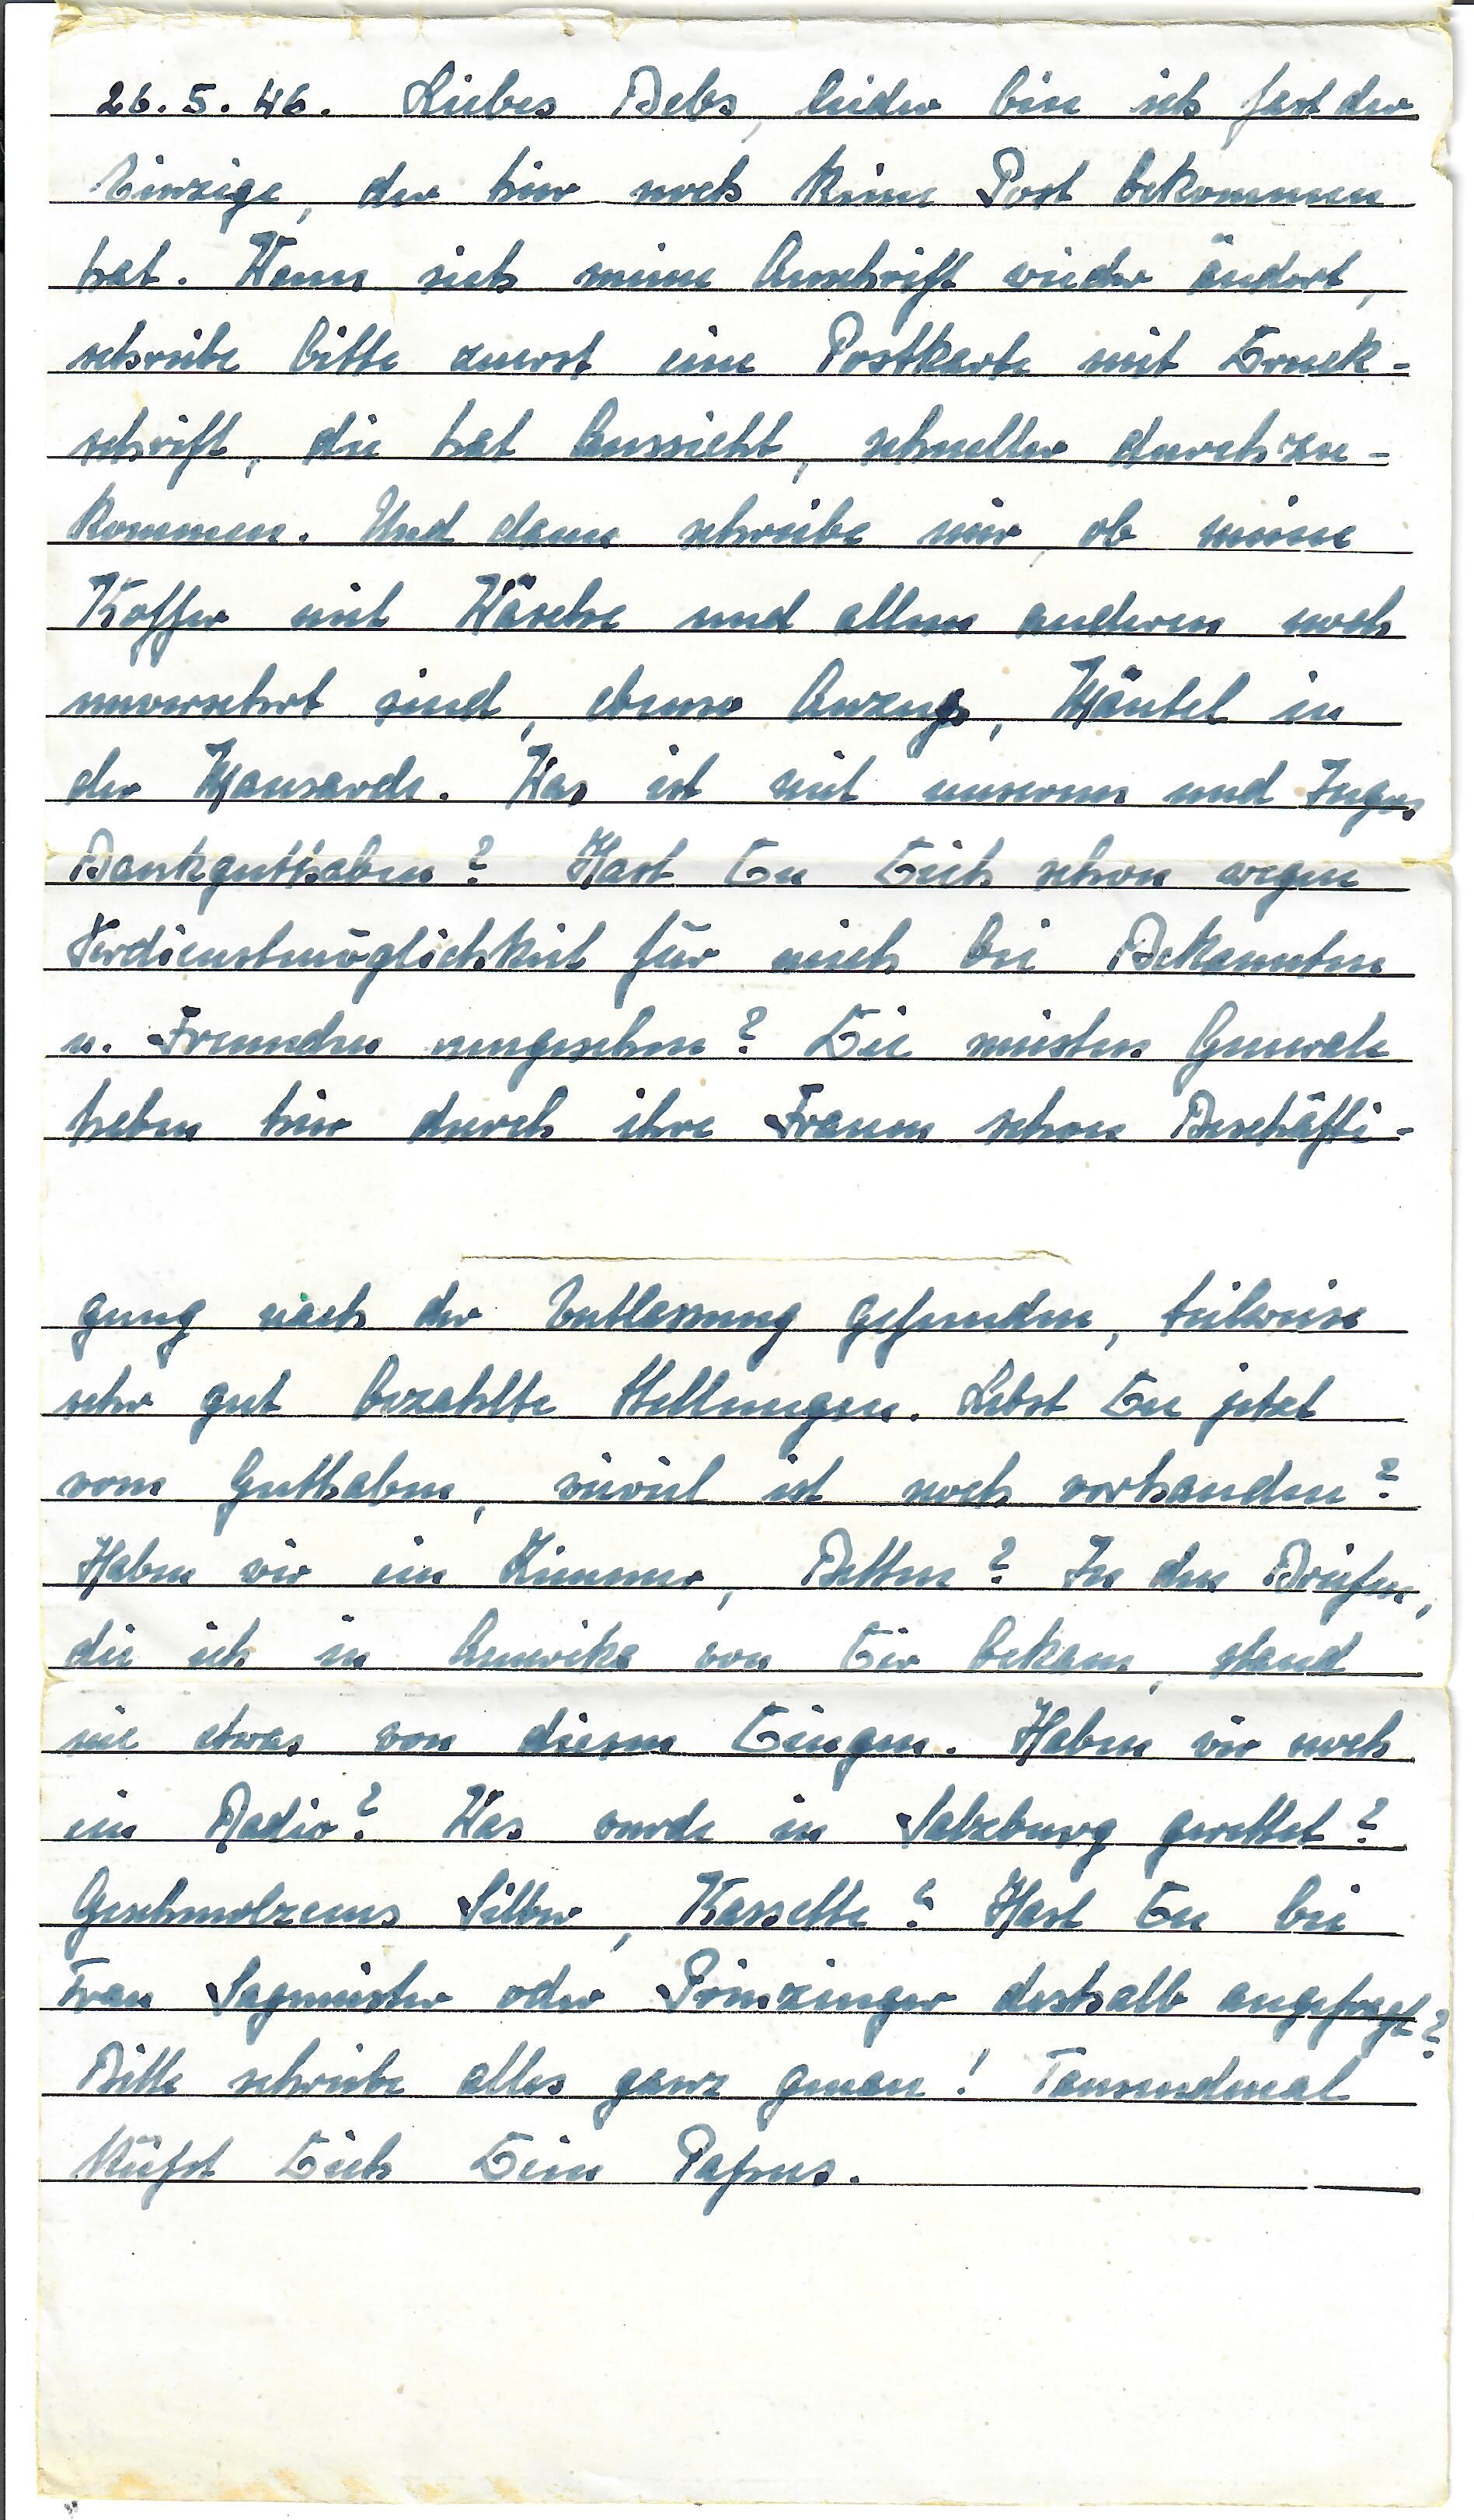 26.5.46. Liebes Bebs, leider bin ich fast der
Einzige, der hier noch keine Post bekommen
hat. Wenn sich meine Anschrift wieder ändert,
schreibe bitte zuerst eine Postkarte mit Druck-
schrift, die hat Aussicht, schneller durchzu-
kommen. Und dann schreibe mir, ob meine
Koffer mit Wäsche und allem anderen noch
unversehrt sind, ebenso Anzug, Mäntel in
der Mansarde. Was ist mit unserem und Inges
Bankguthaben? Hast Du Dich schon wegen
Verdienstmöglichkeit für mich bei Bekannten
u. Freunden umgesehen? Die meisten Generale
haben hier durch ihre Frauen schon Beschäfti-
gung nach der Entlassung gefunden, teilweise
sehr gut bezahlte Stellungen. Lebst Du jetzt
vom Guthaben, wieviel ist noch vorhanden?
Haben wir ein Zimmer, Betten? In den Briefen,
die ich in Amerika von Dir bekam, stand
nie etwas von diesen Dingen. Haben wir noch
ein Radio? Was wurde in Salzburg gerettet?
Geschmolzenes Silber, Kassette? Hast Du bei
Frau Sagmeister oder Prinzinger deshalb angefragt?
Bitte schreibe alles ganz genau! Tausendmal
küßt Dich Dein